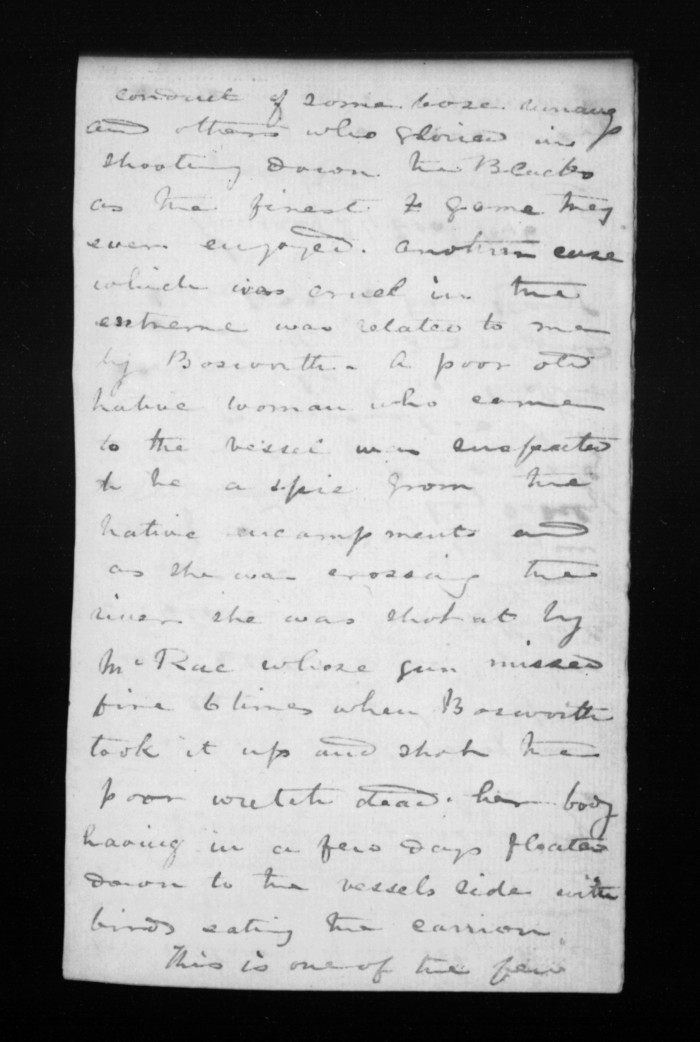 conduct of some base
and others who gloried in
shooting down the Blacks
as the finest game they
ever enjoyed. another case
which was cruel in the
extreme was related to me
by Bosworth. A poor old
native woman who came
to the vessel was suspected
to be a spie from the
native encampments and
as she was crossing the
river she was shot at by
McRae whose gun missed
fire 6 times when Bosworth
took it up and shot the
poor wretch dead. her body
having in a few days floated
down to the vessels side with
birds eating the carrion.
This is one of the few